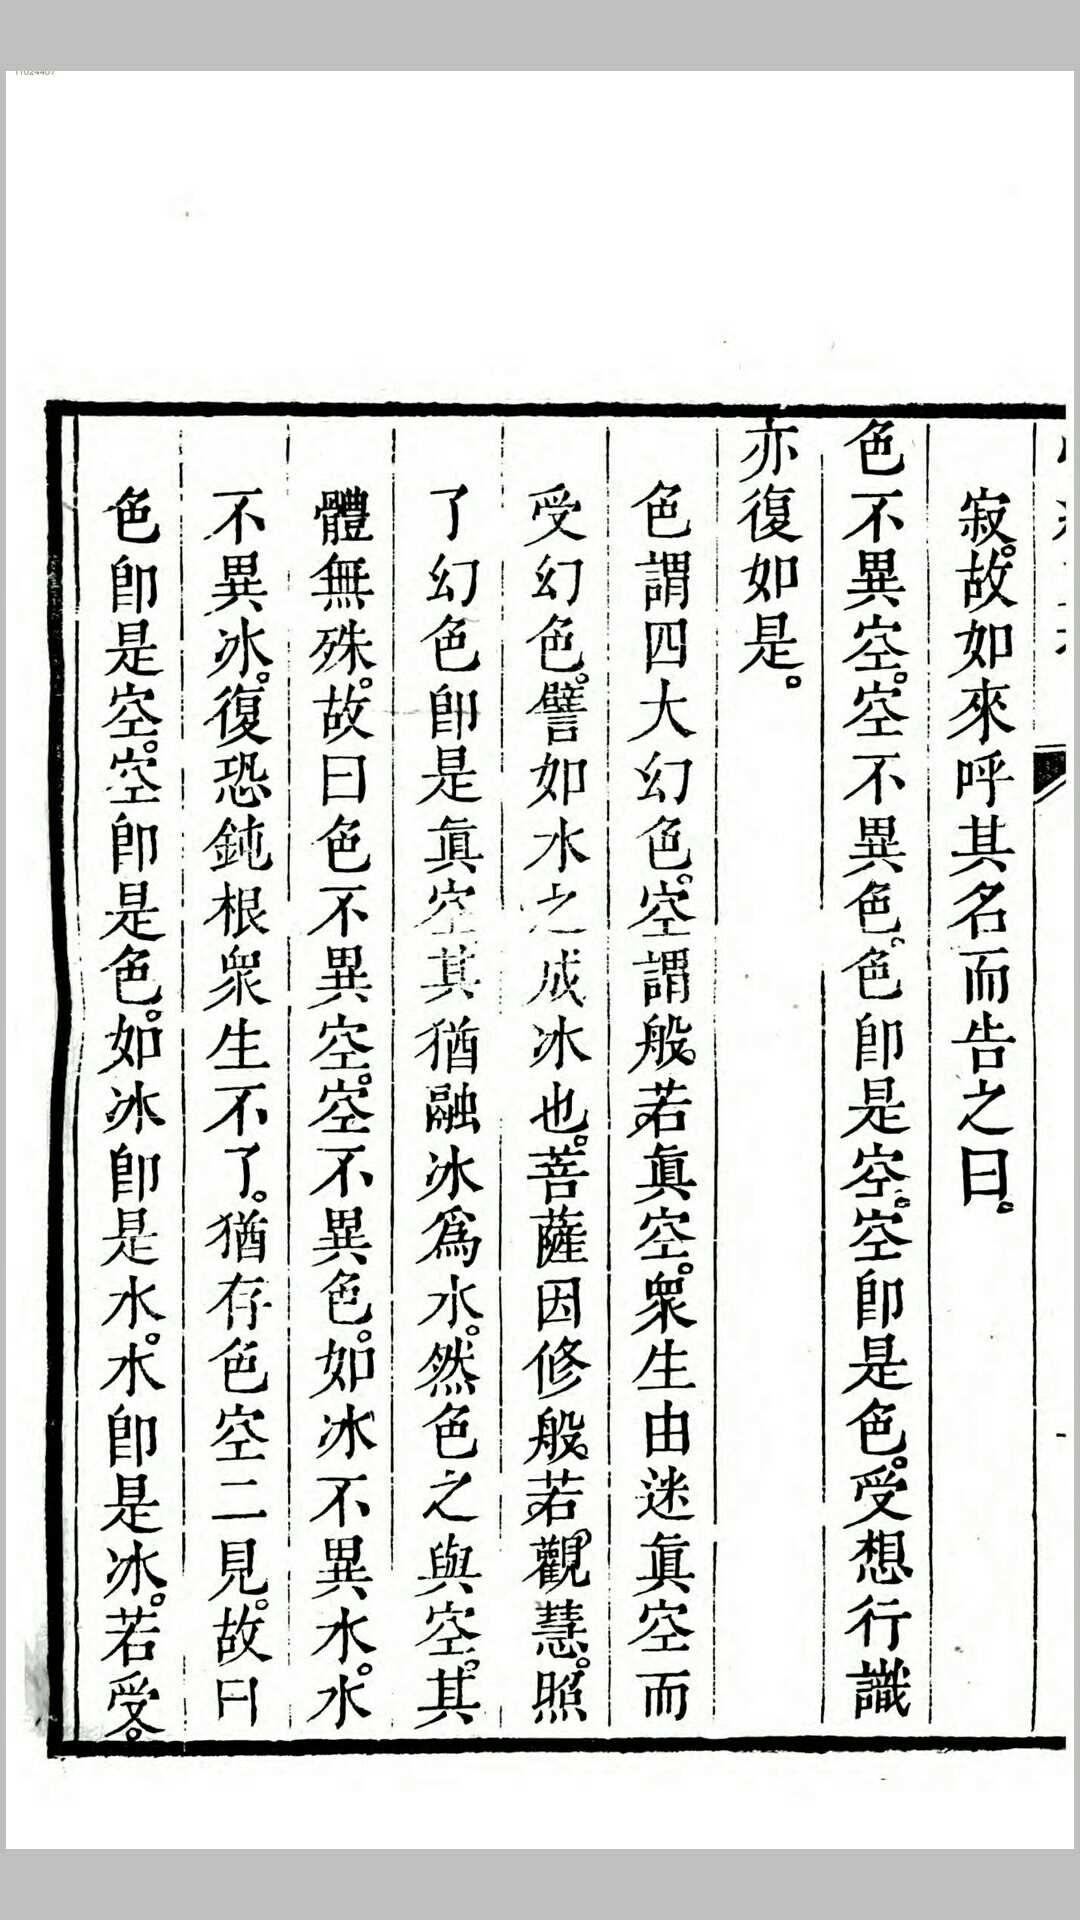 寂。故如來呼其名而告之曰。
色不異空。空不異色。色卽是空。空卽是色。受想行識
亦復如是。
色謂四大幻色。空謂般若眞空。衆生由迷眞空而
受幻色。譬如水之成冰也。菩薩因修般若觀慧。照
了幻色卽是眞空其猶融冰爲水。然色之與空。其
體無殊。故曰色不異空。空不異色。如冰不異水。水
不異冰。復恐鈍根衆生不了。猶存色空二見。故曰
色卽是空。空卽是色。如冰卽是水。水卽是冰。若受。